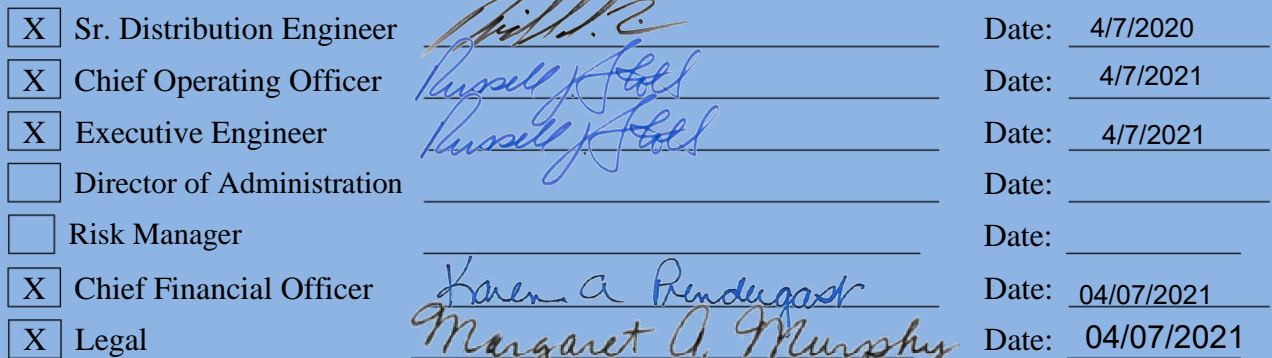 X Sr. Distribution Engineer Date: 4/7/2020
X Chief Operating Officer Russell J. Stoll Date: 4/7/2021
X Executive Engineer Russell J. Stoll Date: 4/7/2021
Director of Administration Date:
Risk Manager Date:
X Chief Financial Officer Karen A Prendergast Date: 04/07/2021
X Legal Margaret A. Murphy Date: 04/07/2021